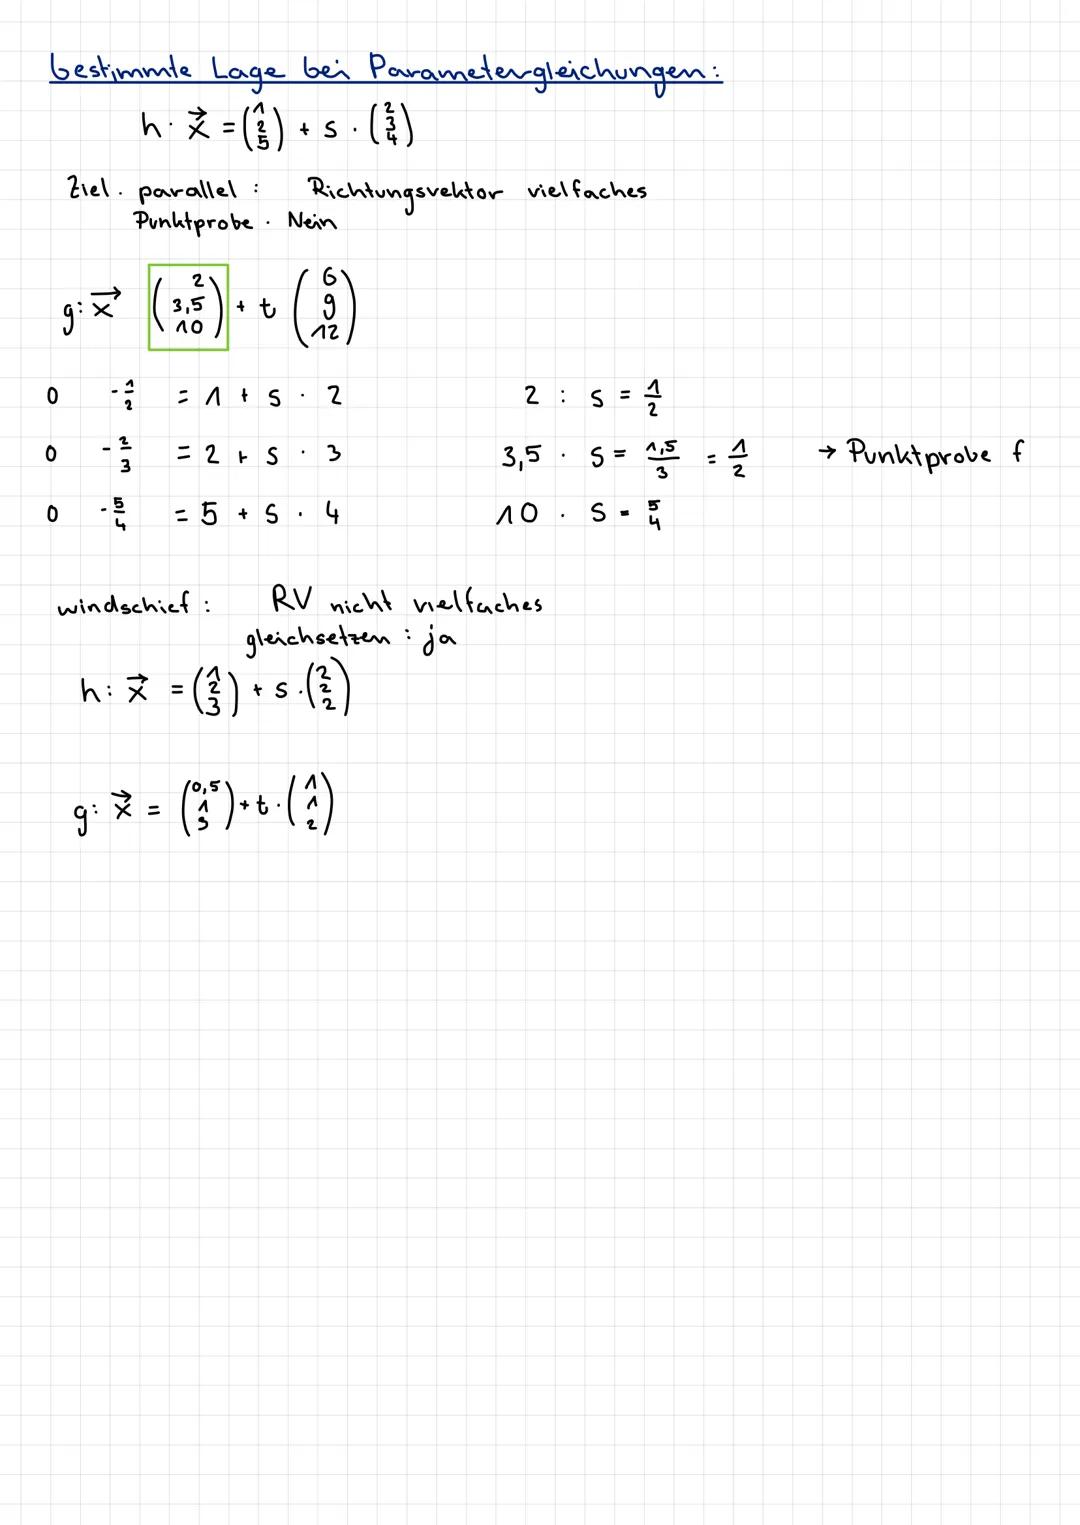 bestimmte Lage bei Parametergleichungen:
h: x⃗ = (1 2 5) + s · (2 3 4)
Ziel: parallel : Richtungsvektor vielfaches
Punktprobe : Nein
g: x⃗ (2 3,5 10) + t (6 9 12)
0 -1/2 = 1 + s · 2 2 : s = 1/2
0 -2/3 = 2 + s · 3 3,5 : s = 1,5/3 = 1/2 → Punktprobe f
0 -5/4 = 5 + s · 4 10 : s = 5/4
windschief : RV nicht vielfaches
gleichsetzen : ja
h: x⃗ = (1 2 3) + s · (2 2 2)
g: x⃗ = (0,5 1 3) + t · (1 1 2)